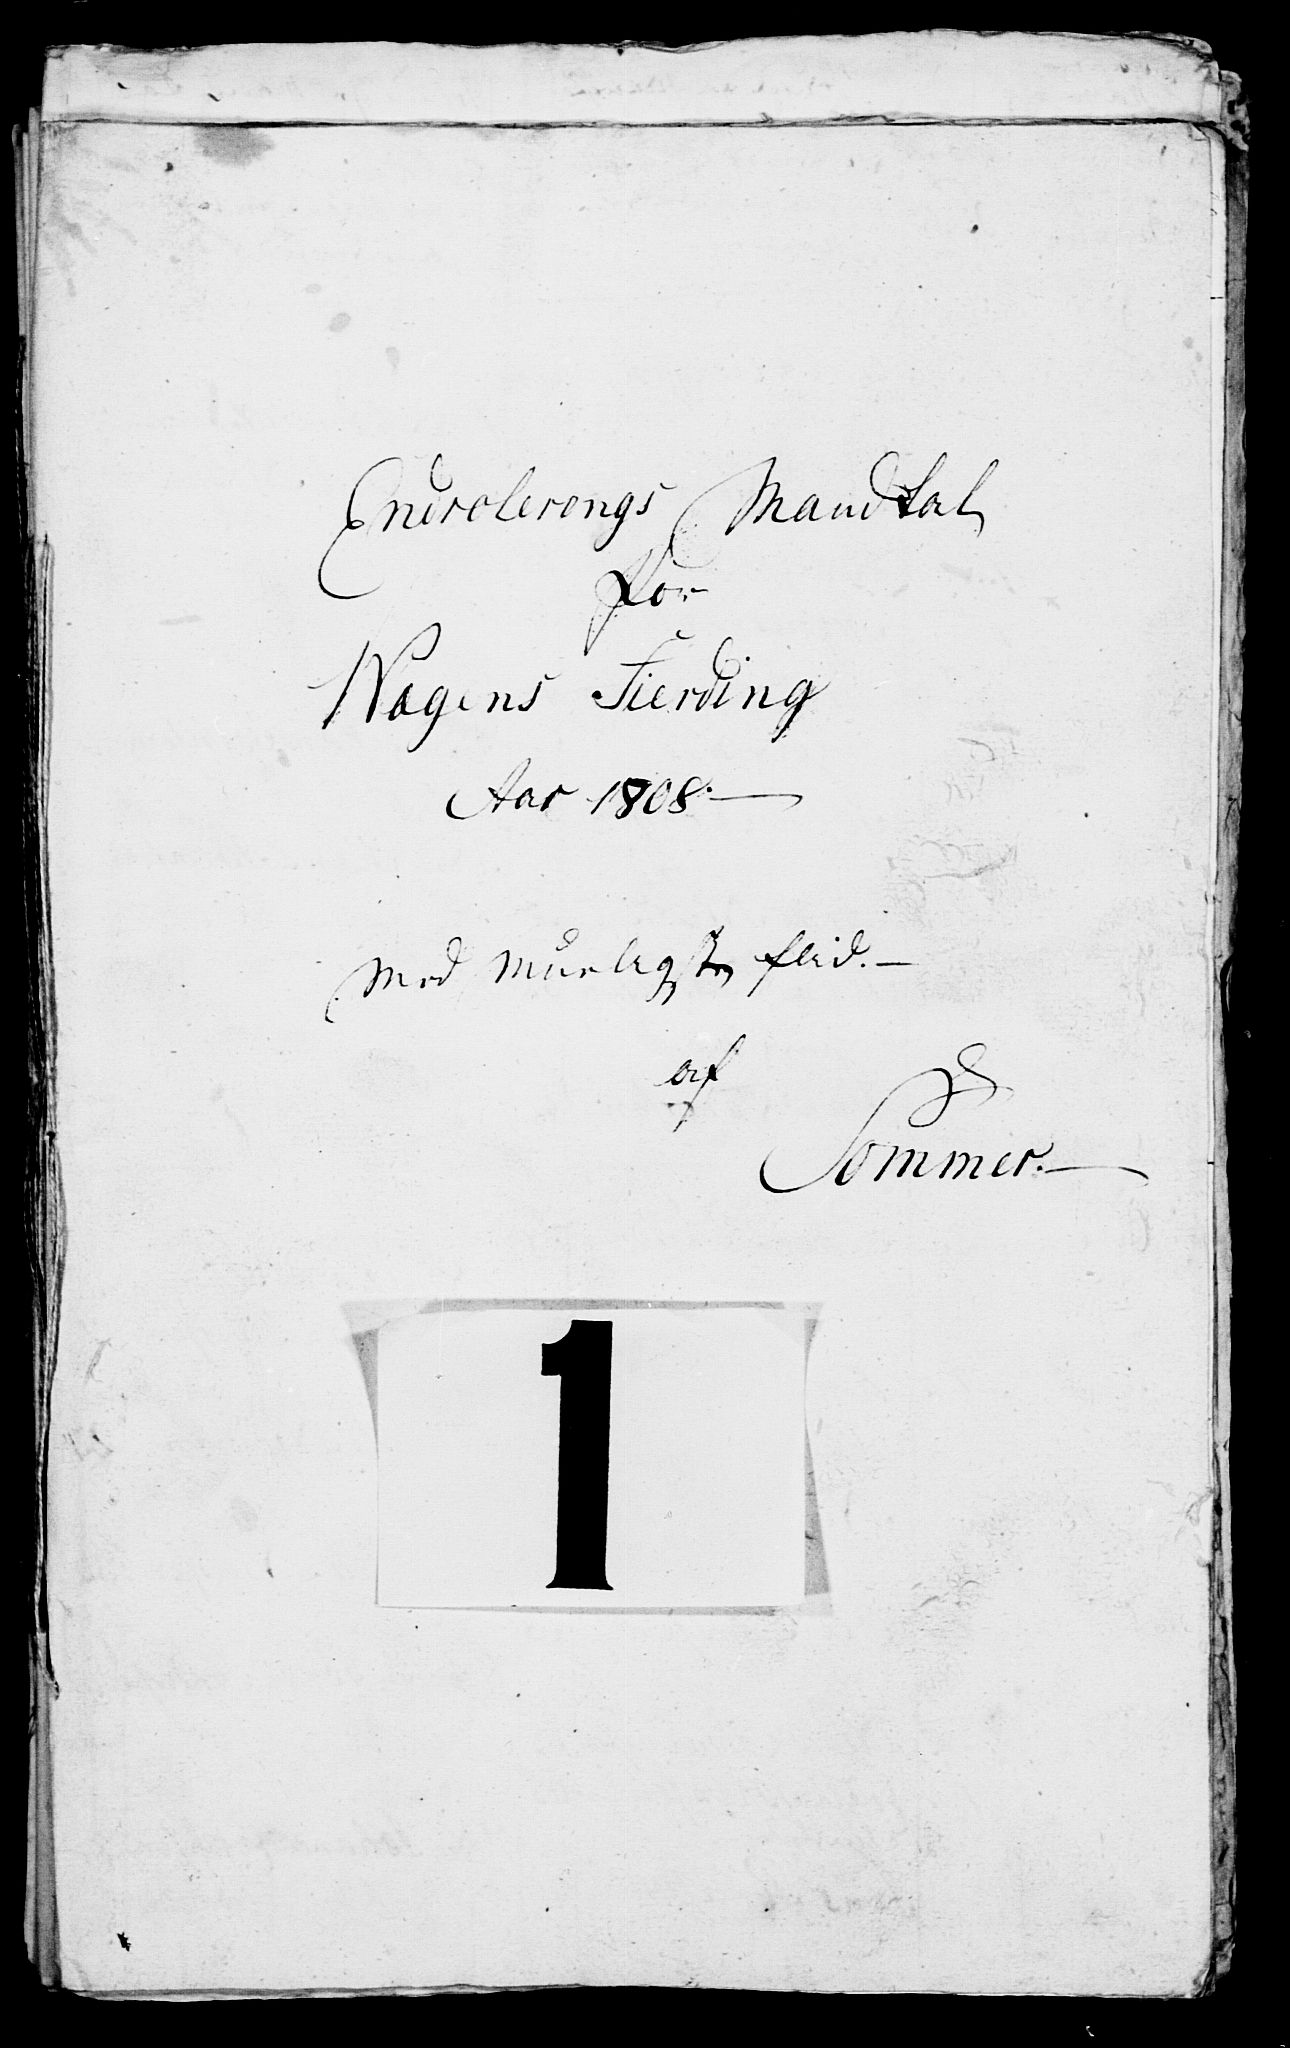 Endrolerengs Mandtal
for
Wagens Fierding
Aar 1808.
Med Muelegste flid.
af
Sommer.
1